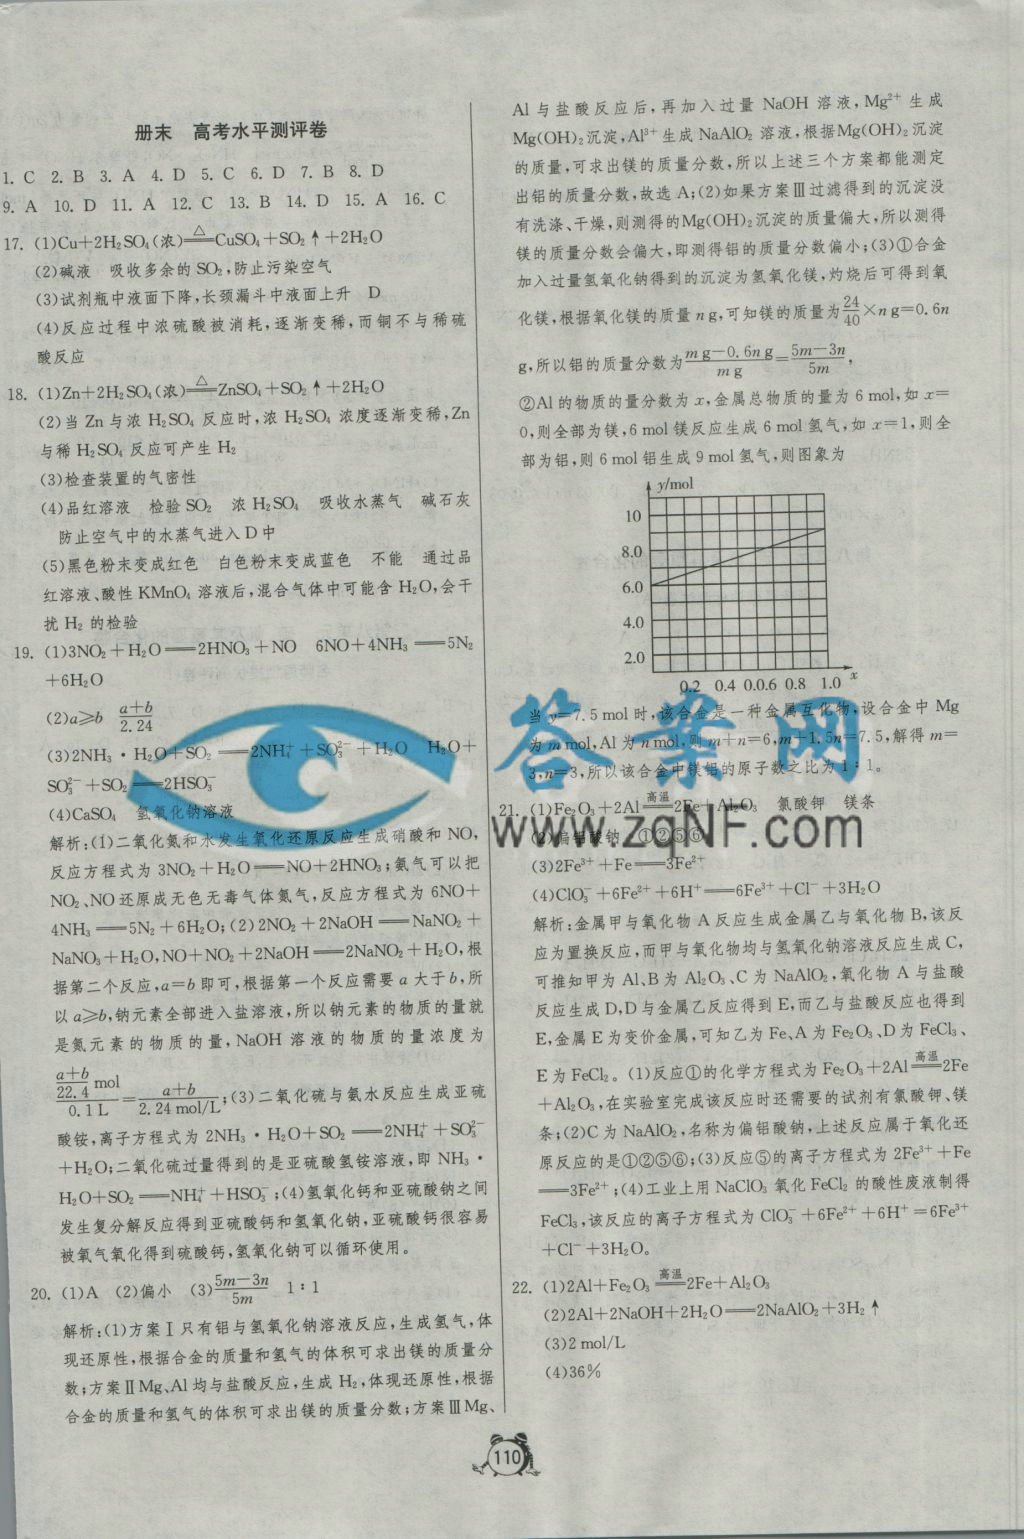 册末　高考水平测评卷
1. C　2. B　3. A　4. D　5. C　6. D　7. B　8. D
9. A　10. D　11. A　12. C　13. B　14. D　15. A　16. C
17. (1)Cu+2H₂SO₄(浓)══(△)CuSO₄+SO₂↑+2H₂O
(2)碱液　吸收多余的SO₂,防止污染空气
(3)试剂瓶中液面下降,长颈漏斗中液面上升　D
(4)反应过程中浓硫酸被消耗,逐渐变稀,而铜不与稀硫
酸反应
18. (1)Zn+2H₂SO₄(浓)══(△)ZnSO₄+SO₂↑+2H₂O
(2)当 Zn 与浓 H₂SO₄ 反应时,浓 H₂SO₄ 浓度逐渐变稀,Zn
与稀 H₂SO₄ 反应可产生 H₂
(3)检查装置的气密性
(4)品红溶液　检验 SO₂　浓 H₂SO₄　吸收水蒸气　碱石灰
防止空气中的水蒸气进入 D 中
(5)黑色粉末变成红色　白色粉末变成蓝色　不能　通过品
红溶液、酸性 KMnO₄ 溶液后,混合气体中可能含 H₂O,会干
扰 H₂ 的检验
19. (1)3NO₂+H₂O══2HNO₃+NO　6NO+4NH₃══5N₂
+6H₂O
(2)a≥b　(a+b)/2.24
(3)2NH₃·H₂O+SO₂══2NH₄⁺+SO₃²⁻+H₂O　H₂O+
SO₃²⁻+SO₂══2HSO₃⁻
(4)CaSO₄　氢氧化钠溶液
解析:(1)二氧化氮和水发生氧化还原反应生成硝酸和 NO,
反应方程式为 3NO₂+H₂O══NO+2HNO₃;氨气可以把
NO₂、NO 还原成无色无毒气体氮气,反应方程式为 6NO+
4NH₃══5N₂+6H₂O;(2)2NO₂+2NaOH══NaNO₂+
NaNO₃+H₂O,NO+NO₂+2NaOH══2NaNO₂+H₂O,根
据第二个反应,a=b 即可,根据第一个反应需要 a 大于 b,所
以 a≥b,钠元素全部进入盐溶液,所以钠元素的物质的量就
是氮元素的物质的量,NaOH 溶液的物质的量浓度为
((a+b)/22.4 mol)/(0.1 L)=(a+b)/(2.24 mol/L);(3)二氧化硫与氨水反应生成亚硫
酸铵,离子方程式为 2NH₃·H₂O+SO₂══2NH₄⁺+SO₃²⁻
+H₂O;二氧化硫过量得到的是亚硫酸氢铵溶液,即 NH₃·
H₂O+SO₂══NH₄⁺+HSO₃⁻;(4)氢氧化钙和亚硫酸钠之间
发生复分解反应得到亚硫酸钙和氢氧化钠,亚硫酸钙很容易
被氧气氧化得到硫酸钙,氢氧化钠可以循环使用。
20. (1)A　(2)偏小　(3)(5m−3n)/5m　1∶1
解析:(1)方案Ⅰ只有铝与氢氧化钠溶液反应,生成氢气,体
现还原性,根据合金的质量和氢气的体积可求出镁的质量分
数;方案Ⅱ Mg、Al 均与盐酸反应,生成 H₂,体现还原性,根据
合金的质量和氢气的体积可求出镁的质量分数;方案Ⅲ Mg、
Al 与盐酸反应后,再加入过量 NaOH 溶液,Mg²⁺ 生成
Mg(OH)₂沉淀,Al³⁺生成 NaAlO₂ 溶液,根据Mg(OH)₂沉淀
的质量,可求出镁的质量分数,所以上述三个方案都能测定
出铝的质量分数,故选 A;(2)如果方案Ⅲ过滤得到的沉淀没
有洗涤、干燥,则测得的Mg(OH)₂沉淀的质量偏大,所以测得
镁的质量分数会偏大,即测得铝的质量分数偏小;(3)①合金
加入过量氢氧化钠得到的沉淀为氢氧化镁,灼烧后可得到氧
化镁,根据氧化镁的质量 n g,可知镁的质量为24/40×n g=0.6n
g,所以铝的质量分数为(m g−0.6n g)/(m g)=(5m−3n)/5m,
②Al 的物质的量分数为 x,金属总物质的量为 6 mol,如 x=
0,则全部为镁,6 mol 镁反应生成 6 mol 氢气,如 x=1,则全
部为铝,则 6 mol 铝生成 9 mol 氢气,则图象为
y/mol
10
8.0
6.0
4.0
2.0
0.2　0.4　0.0.6　0.8　1.0　x
当 y=7.5 mol 时,该合金是一种金属互化物,设合金中 Mg
为 m mol,Al 为 n mol,则 m+n=6,m+1.5n=7.5,解得 m=
3,n=3,所以该合金中镁铝的原子数之比为 1∶1。
21. (1)Fe₂O₃+2Al══(高温)2Fe+Al₂O₃　氯酸钾　镁条
(2)偏铝酸钠　①②⑤⑥
(3)2Fe³⁺+Fe══3Fe²⁺
(4)ClO₃⁻+6Fe²⁺+6H⁺══6Fe³⁺+Cl⁻+3H₂O
解析:金属甲与氧化物 A 反应生成金属乙与氧化物 B,该反
应为置换反应,而甲与氧化物均与氢氧化钠溶液反应生成 C,
可推知甲为 Al、B 为 Al₂O₃、C 为 NaAlO₂,氧化物 A 与盐酸
反应生成 D,D 与金属乙反应得到 E,而乙与盐酸反应也得到
E,金属 E 为变价金属,可知乙为 Fe、A 为 Fe₂O₃、D 为 FeCl₃、
E 为 FeCl₂。(1)反应①的化学方程式为 Fe₂O₃+2Al══(高温)2Fe
+Al₂O₃,在实验室完成该反应时还需要的试剂有氯酸钾、镁
条;(2)C 为 NaAlO₂,名称为偏铝酸钠,上述反应属于氧化还
原反应的是①②⑤⑥;(3)反应⑤的离子方程式为 2Fe³⁺+Fe
══3Fe²⁺;(4)工业上用 NaClO₃ 氧化 FeCl₂ 的酸性废液制得
FeCl₃,该反应的离子方程式为 ClO₃⁻+6Fe²⁺+6H⁺=6Fe³⁺
+Cl⁻+3H₂O。
22. (1)2Al+Fe₂O₃══(高温)2Fe+Al₂O₃
(2)2Al+2NaOH+2H₂O══2NaAlO₂+3H₂↑
(3)2 mol/L
(4)36%
110
答案网
www.zqNF.com